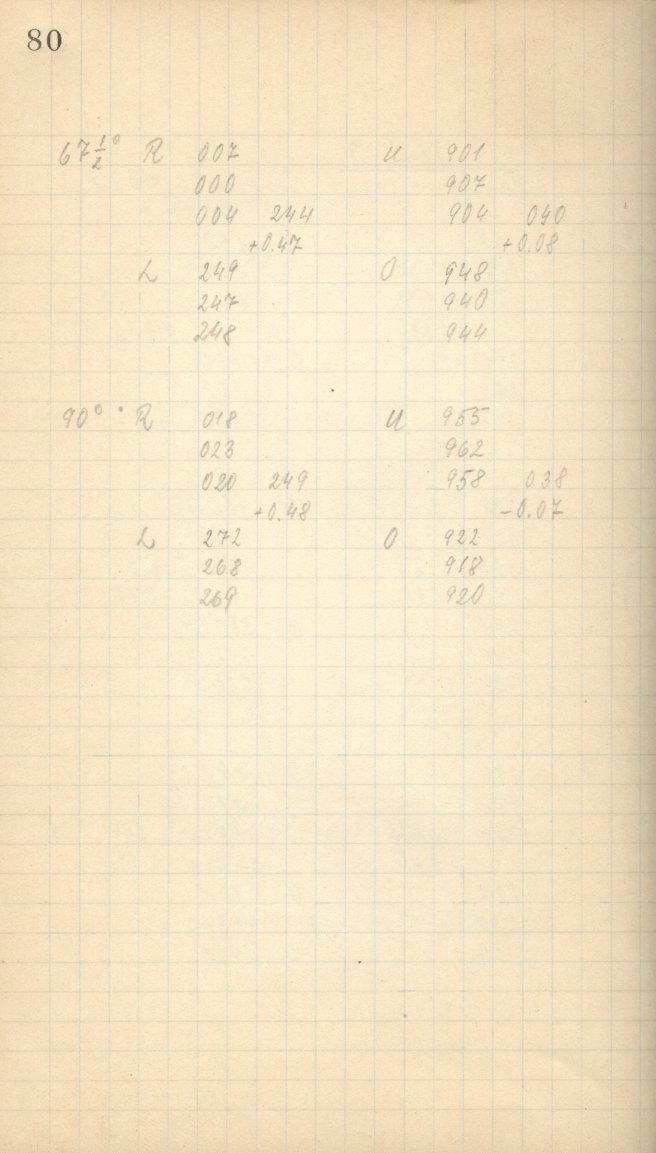 80
67 1/2° R 007 U 901
000 907
004 244 904 040
+0.47 +0.08
L 249 O 948
247 940
248 944
90° R 018 U 955
023 962
020 249 958 038
+0.48 -0.07
L 272 O 922
268 918
269 920